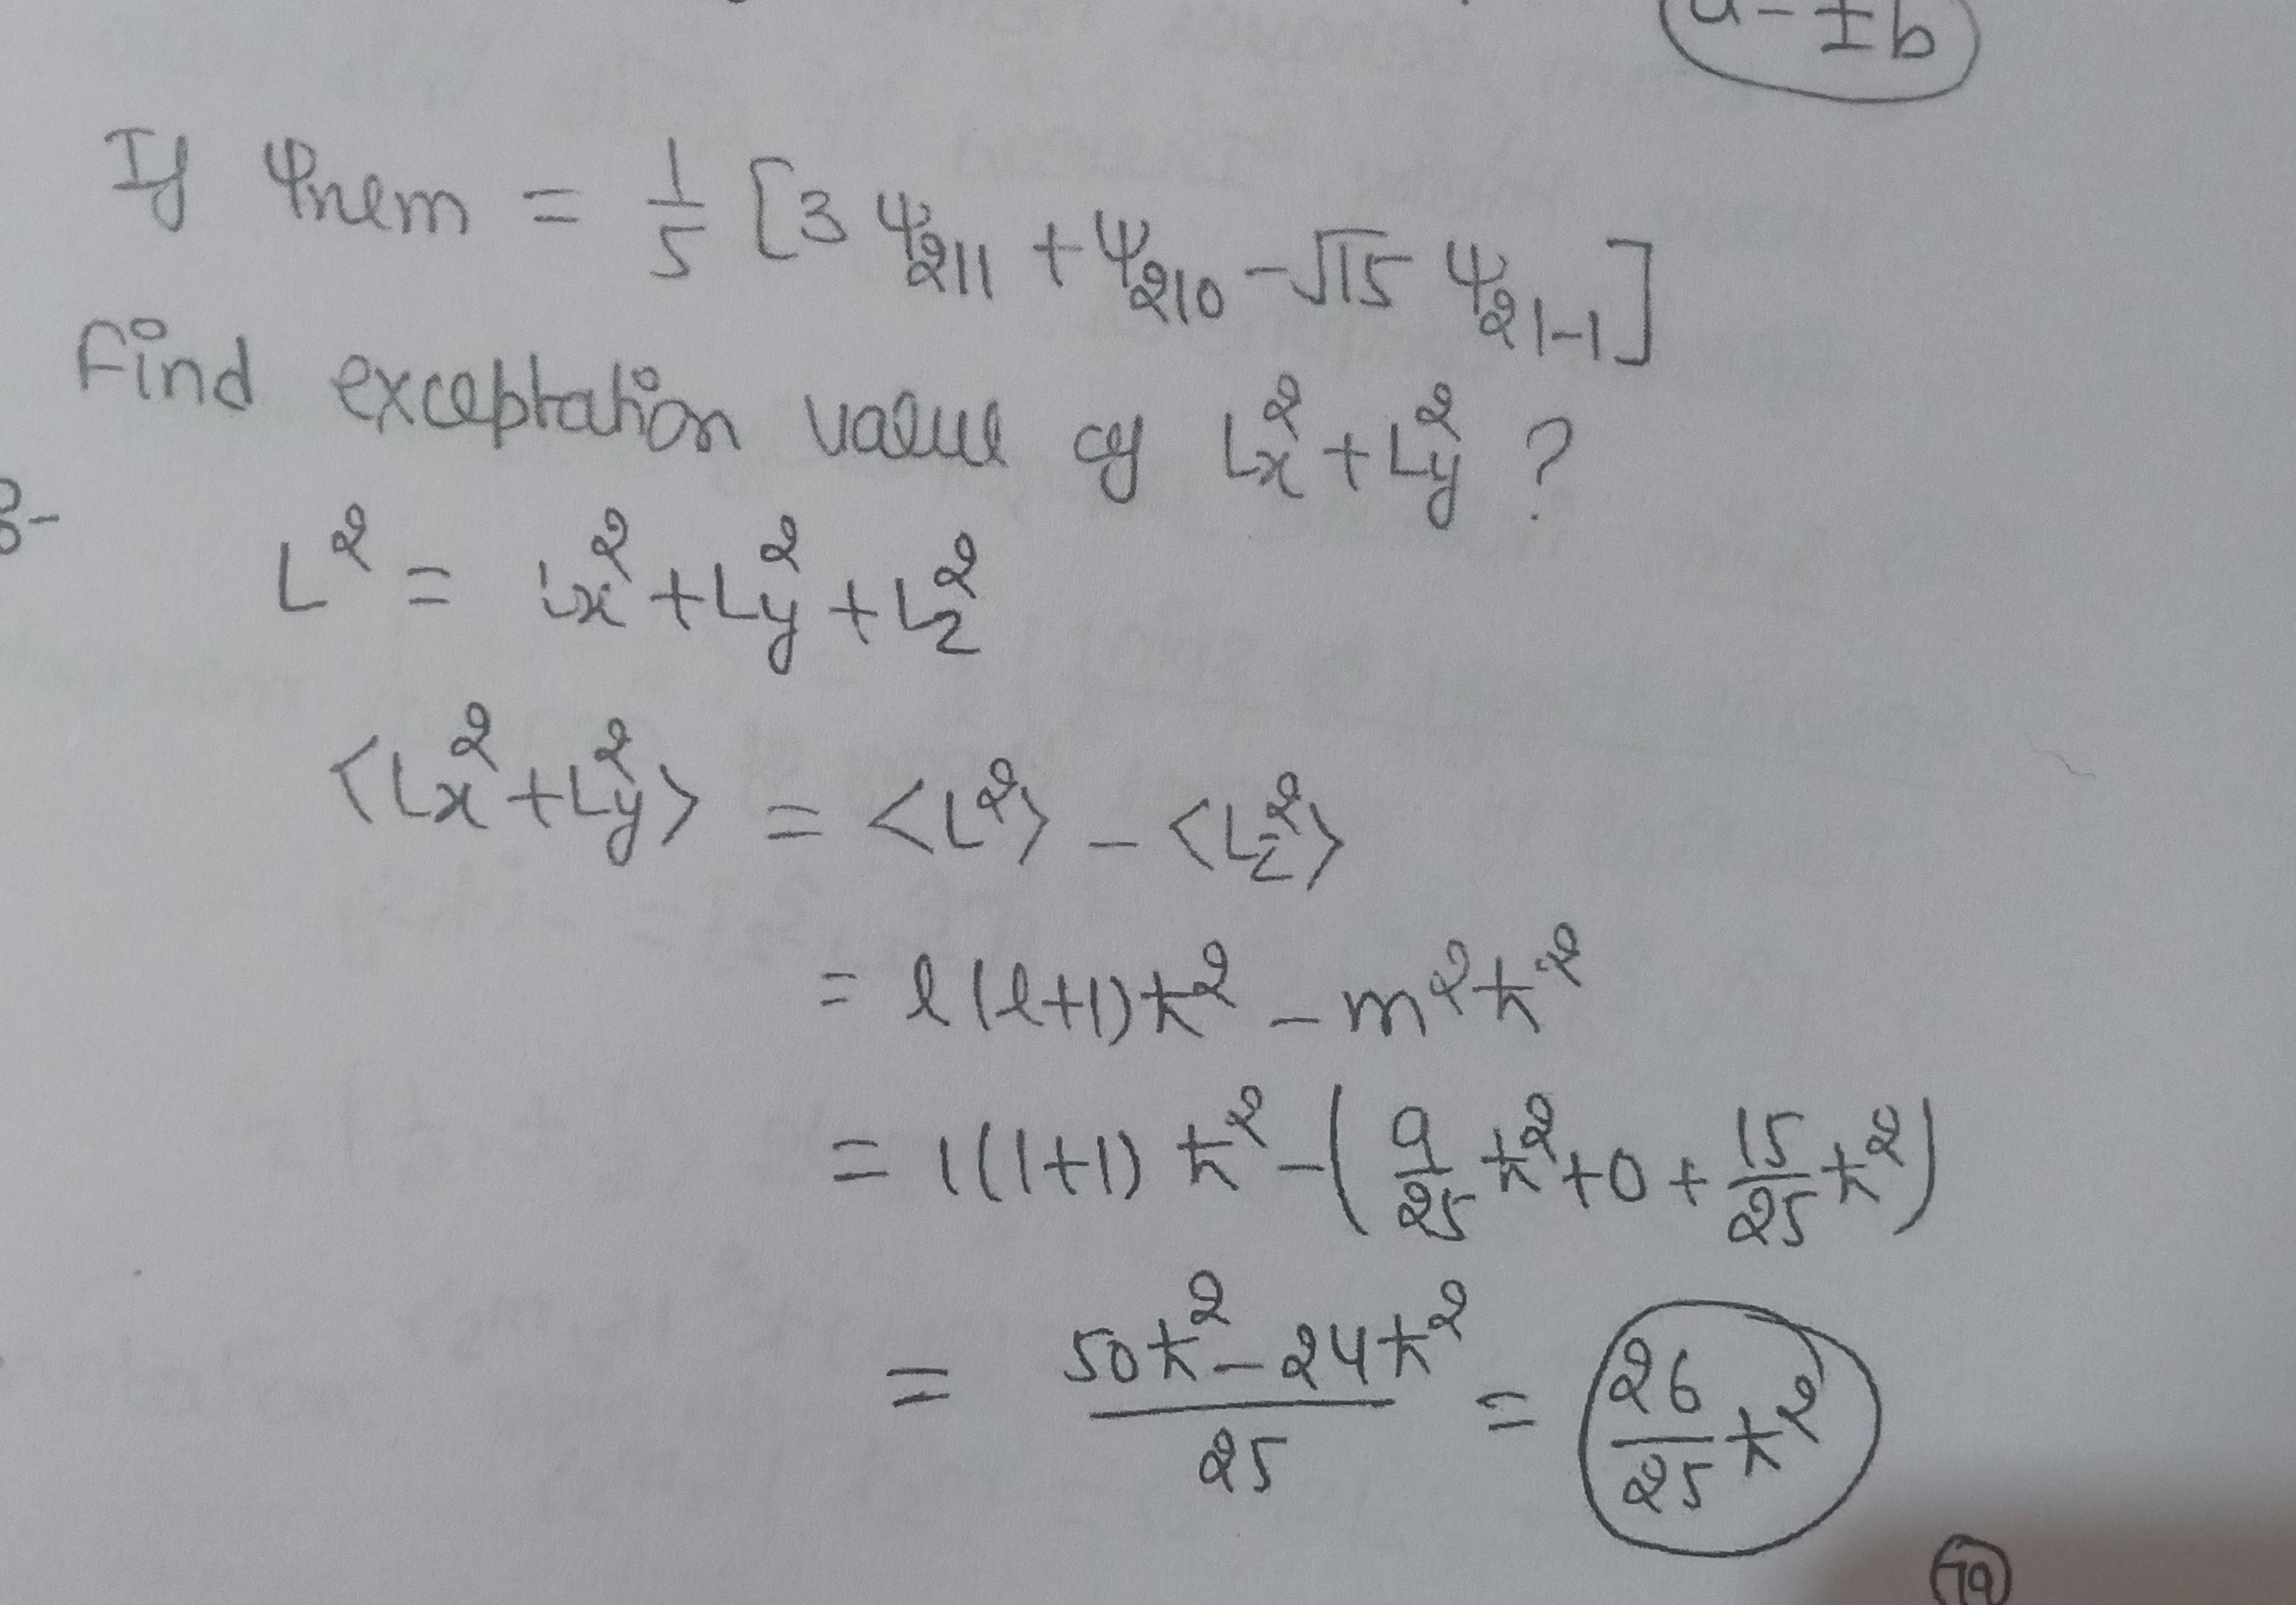 ±b
If Ψnem = 1/5 [3 Ψ211 + Ψ210 - √15 Ψ21-1]
Find exceptation value of Lx² + Ly² ?
L² = Lx² + Ly² + Lz²
<Lx² + Ly²> = <L²> - <Lz²>
= l(l+1)ħ² - m²ħ²
= 1(1+1) ħ² - (9/25 ħ² + 0 + 15/25 ħ²)
= 50ħ² - 24ħ² / 25 = 26/25 ħ²